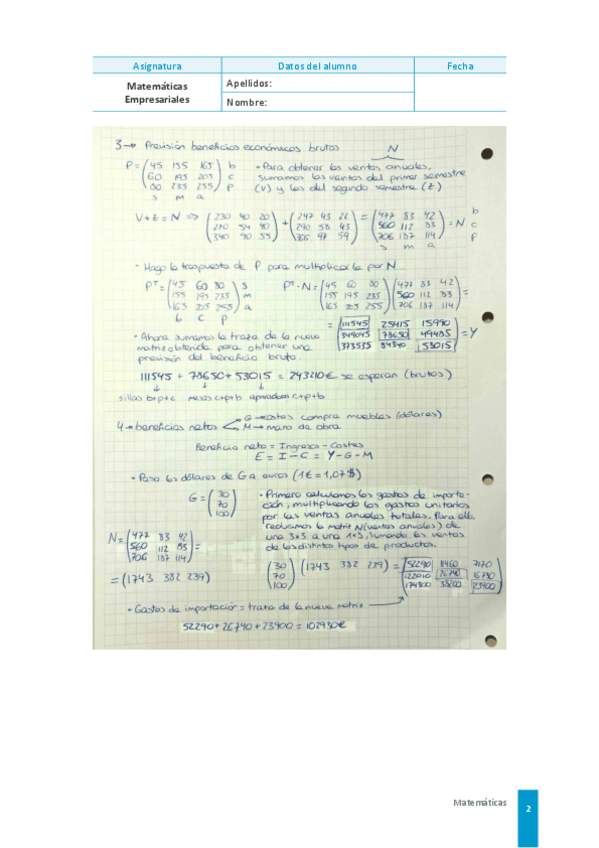 Asignatura Datos del alumno Fecha
Matemáticas Empresariales Apellidos:
Nombre:
3→ Previsión beneficios económicos brutos N
P = (45 155 165) b
(60 195 205) c
(80 235 255) p
s m a
• Para obtener las ventas anuales,
sumamos las ventas del primer semestre
(V) y las del segundo semestre (Z)
V+Z = N ⇒ (230 40 20) + (247 43 22) = (477 83 42) b
(270 54 40) (290 58 43) (560 112 83) = N c
(340 90 55) (366 47 59) (706 137 114) p
s m a
• Hago la traspuesta de P para multiplicar la por N
Pᵀ = (45 60 80) s
(155 195 235) m
(165 205 255) a
b c p
Pᵗ · N = (45 60 80) (477 83 42) =
(155 195 235) (560 112 83)
(165 205 255) (706 137 114)
= (111545 25415 15990)
(349045 78650 49485) = Y
(373535 84340 53015)
• Ahora sumamos la traza de la nueva
matriz obtenida para obtener una
previsión del beneficio bruto.
111545 + 78650 + 53015 = 243210€ se esperan (brutos)
sillas b+p+c mesas c+p+b c+p+b
4→ beneficios netos G→costes compra muebles (dólares)
M→ mano de obra
Beneficio neto = Ingresos - Costes
E = I - C = Y - G - M
• Paso los dólares de G a euros (1€ = 1,07$)
G = (30)
(70)
(100)
• Primero calculamos los gastos de importa-
ción, multiplicando los gastos unitarios
por las ventas anuales totales. Para ello
reducimos la matriz N (ventas anuales) de
una 3x3 a una 1x3, sumando las ventas
de los distintos tipos de productos.
N = (477 83 42) =
(560 112 83)
(706 137 114)
= (1743 382 239)
(30) (1743 382 239) = (52290 11460 7170)
(70) (122010 26740 16730)
(100) (174300 38200 23900)
• Gastos de importación = traza de la nueva matriz
52290 + 26740 + 23900 = 102930€
Matemáticas 2